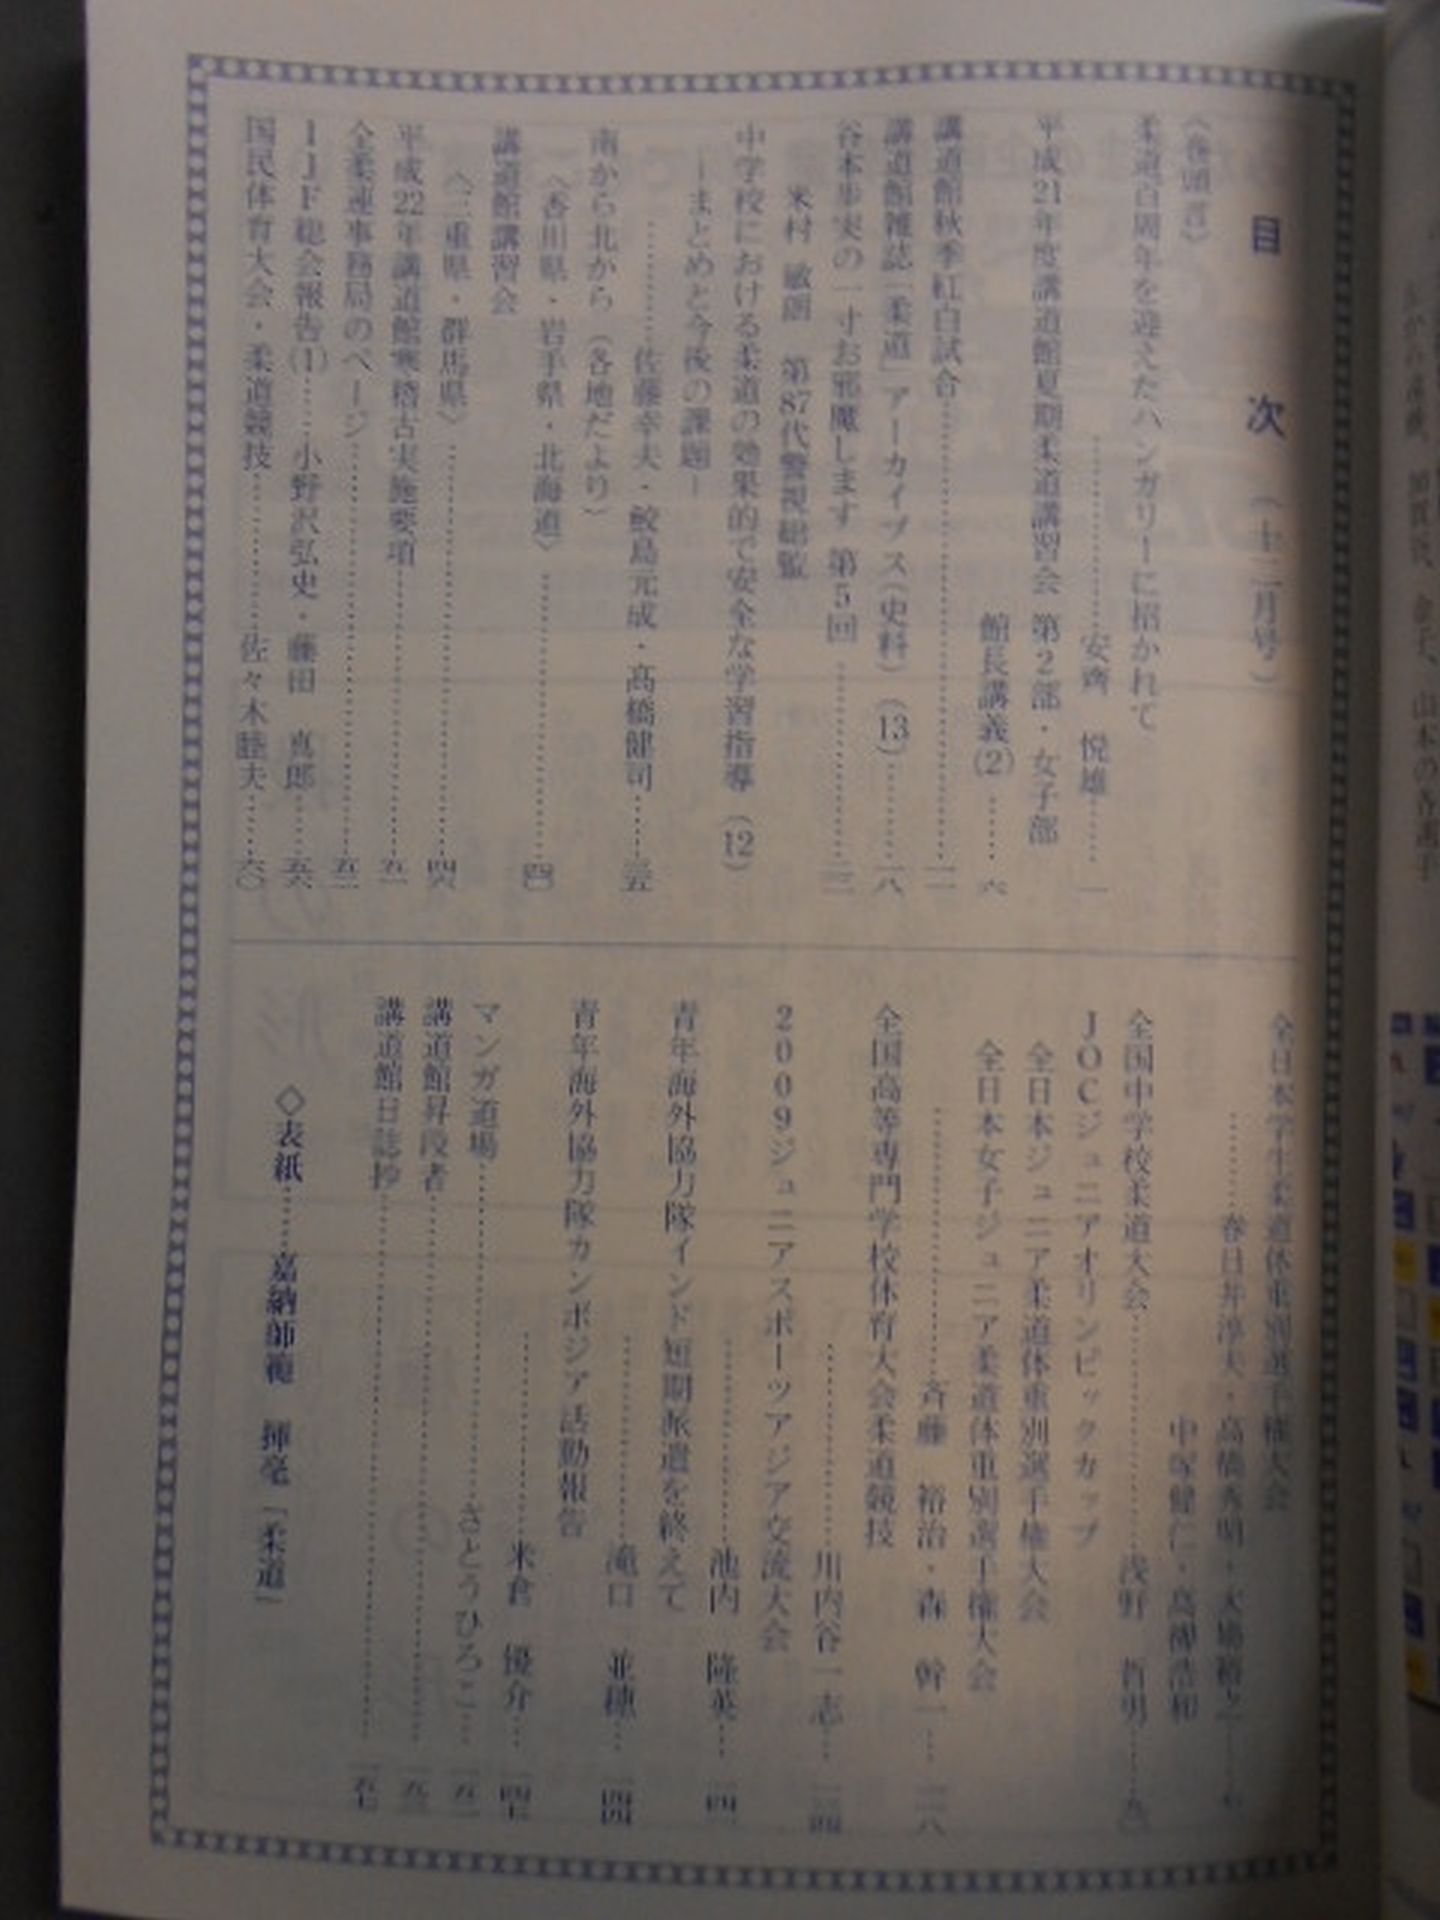 目次（十二月号）
〈巻頭言〉
柔道百周年を迎えたハンガリーに招かれて
…………安齊 悦雄……一
平成21年度講道館夏期柔道講習会 第2部・女子部
館長講義(2)……六
講道館秋季紅白試合……………
講道館雑誌「柔道」アーカイブス（史料）(13)……一八
谷本歩実の一寸お邪魔します 第5回…………
米村 敏朗 第87代警視総監
中学校における柔道の効果的で安全な学習指導(12)
―まとめと今後の課題―
…………佐藤幸夫・鮫島元成・髙橋健司……三五
南から北から（各地だより）
〈香川県・岩手県・北海道〉…………四〇
講道館講習会
〈三重県・群馬県〉…………四六
平成22年講道館寒稽古実施要項…………五一
全柔連事務局のページ…………
IJF総会報告(1)……小野沢弘史・藤田 真郎……五六
国民体育大会・柔道競技…………佐々木睦夫……六〇
全日本学生柔道体重別選手権大会
……春日井淳夫・高橋秀明・大場裕之……
中塚健仁・髙栁浩和
全国中学校柔道大会…………浅野 哲男……九〇
JOCジュニアオリンピックカップ
全日本ジュニア柔道体重別選手権大会
全日本女子ジュニア柔道体重別選手権大会
…………斉藤 裕治・森 幹一……一一八
全国高等専門学校体育大会柔道競技
…………川内谷一志……一三四
2009ジュニアスポーツアジア交流大会
…………池内 隆英……一四一
青年海外協力隊インド短期派遣を終えて
…………滝口 並穂……一四四
青年海外協力隊カンボジア活動報告
…………米倉 優介……一四七
マンガ道場…………さとうひろこ……一五一
講道館昇段者…………一五三
講道館日誌抄…………一五七
◇表紙……嘉納師範 揮毫「柔道」